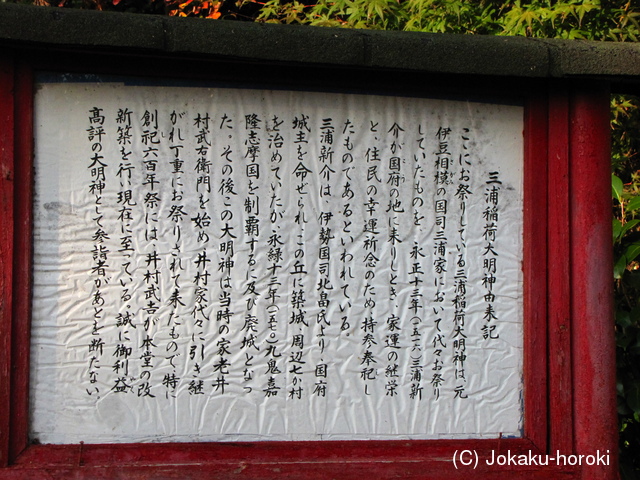 三浦稲荷大明神由来記
ここにお祭りしている三浦稲荷大明神は、元
伊豆相模の国司三浦家において代々お祭り
していたものを、永正十三年(一五一六)三浦新
介が国府の地に来りしとき、家運の継栄
と、住民の幸運祈念のため、持参奉祀し
たものであるといわれている。
三浦新介は、伊勢国司北畠氏より、国府
城主を命ぜられ、この丘に築城、周辺七か村
を治めていたが、永緑十三年(一五七〇)九鬼嘉
隆志摩国を制覇するに及び廃城となっ
た。その後この大明神は当時の家老井
村武右衛門を始め、井村家代々に引き継
がれ丁重にお祭りされて来たもので、特に
創祀六百年祭には、井村武吉が本堂の改
新築を行い現在に至っている。誠に御利益
高評の大明神として参詣者があとを断たない。
(C) Jokaku-horoki